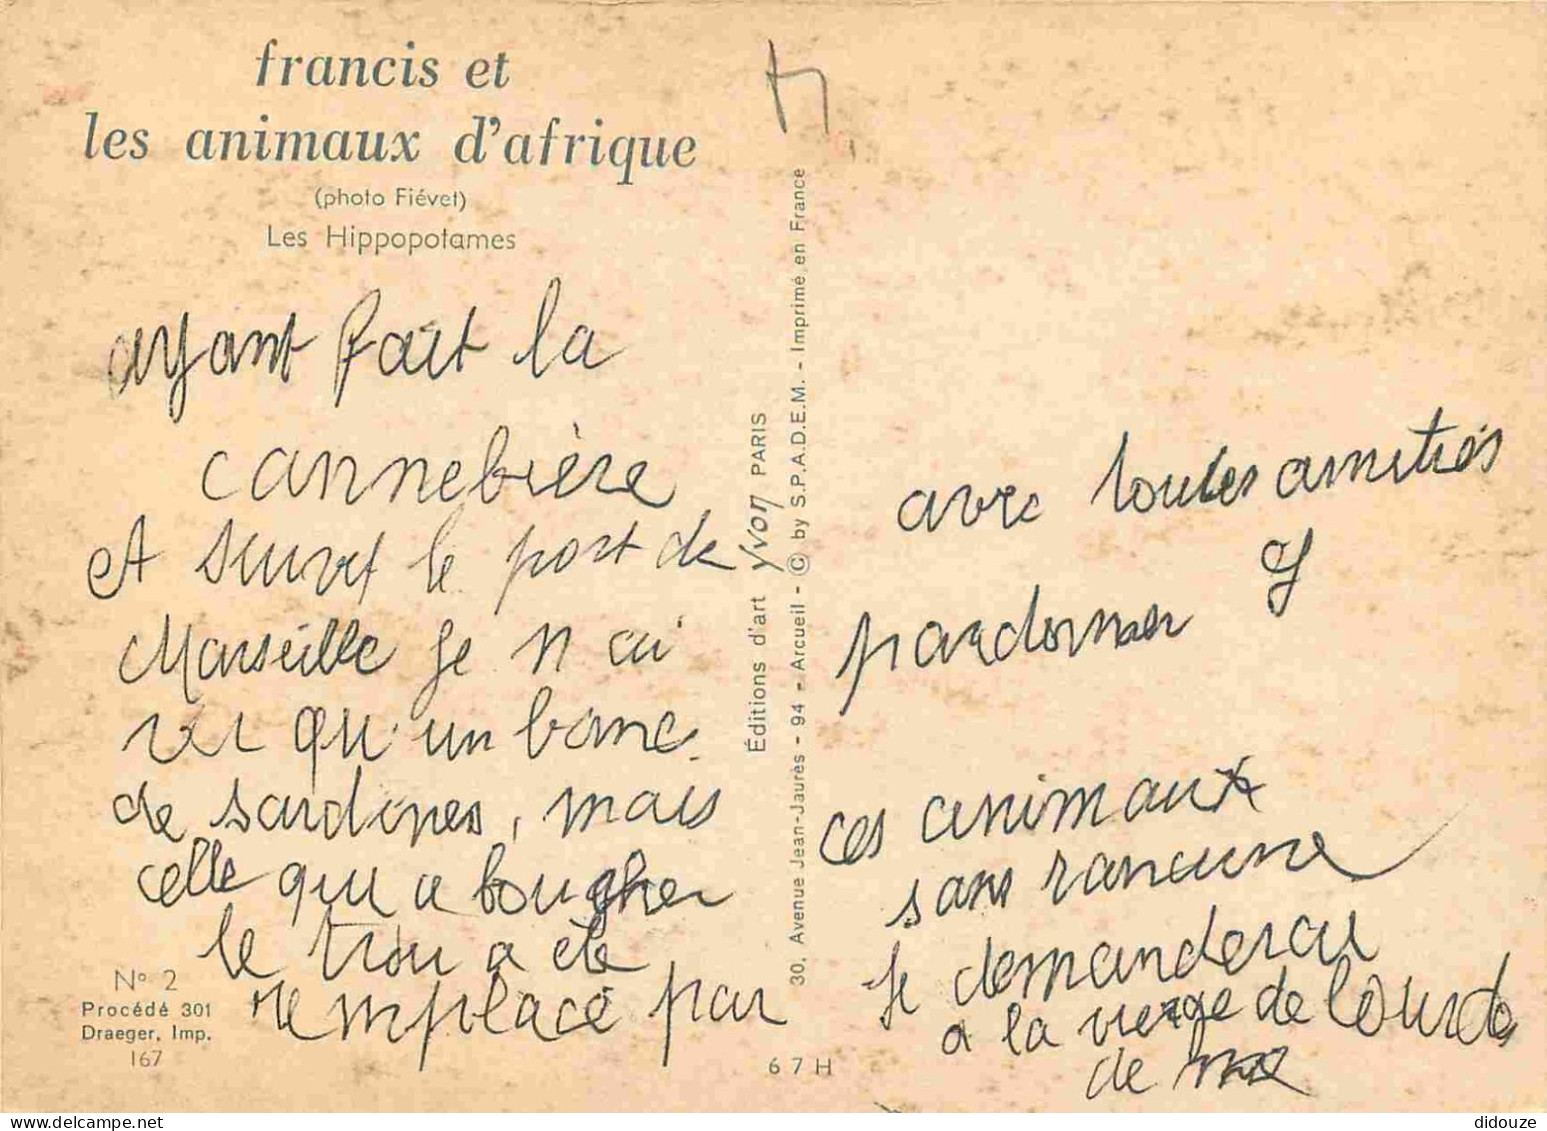 francis et
les animaux d'afrique
(photo Fiévet)
Les Hippopotames
ayant fait la
cannebière
et suivi le port de
Marseille je n ai
vu qu'un banc
de sardines, mais
celle qui a bougher
le trou a été
remplacé par
N° 2
Procédé 301
Draeger, Imp.
167
Éditions d'art yvon PARIS
30, Avenue Jean-Jaurès - 94 - Arcueil - © by S.P.A.D.E.M. - Imprimé en France
67H
ces animaux
sans rancune
je demanderai
a la vierge de Lourde
de me
pardonner
avec toutes amitiés
didouze